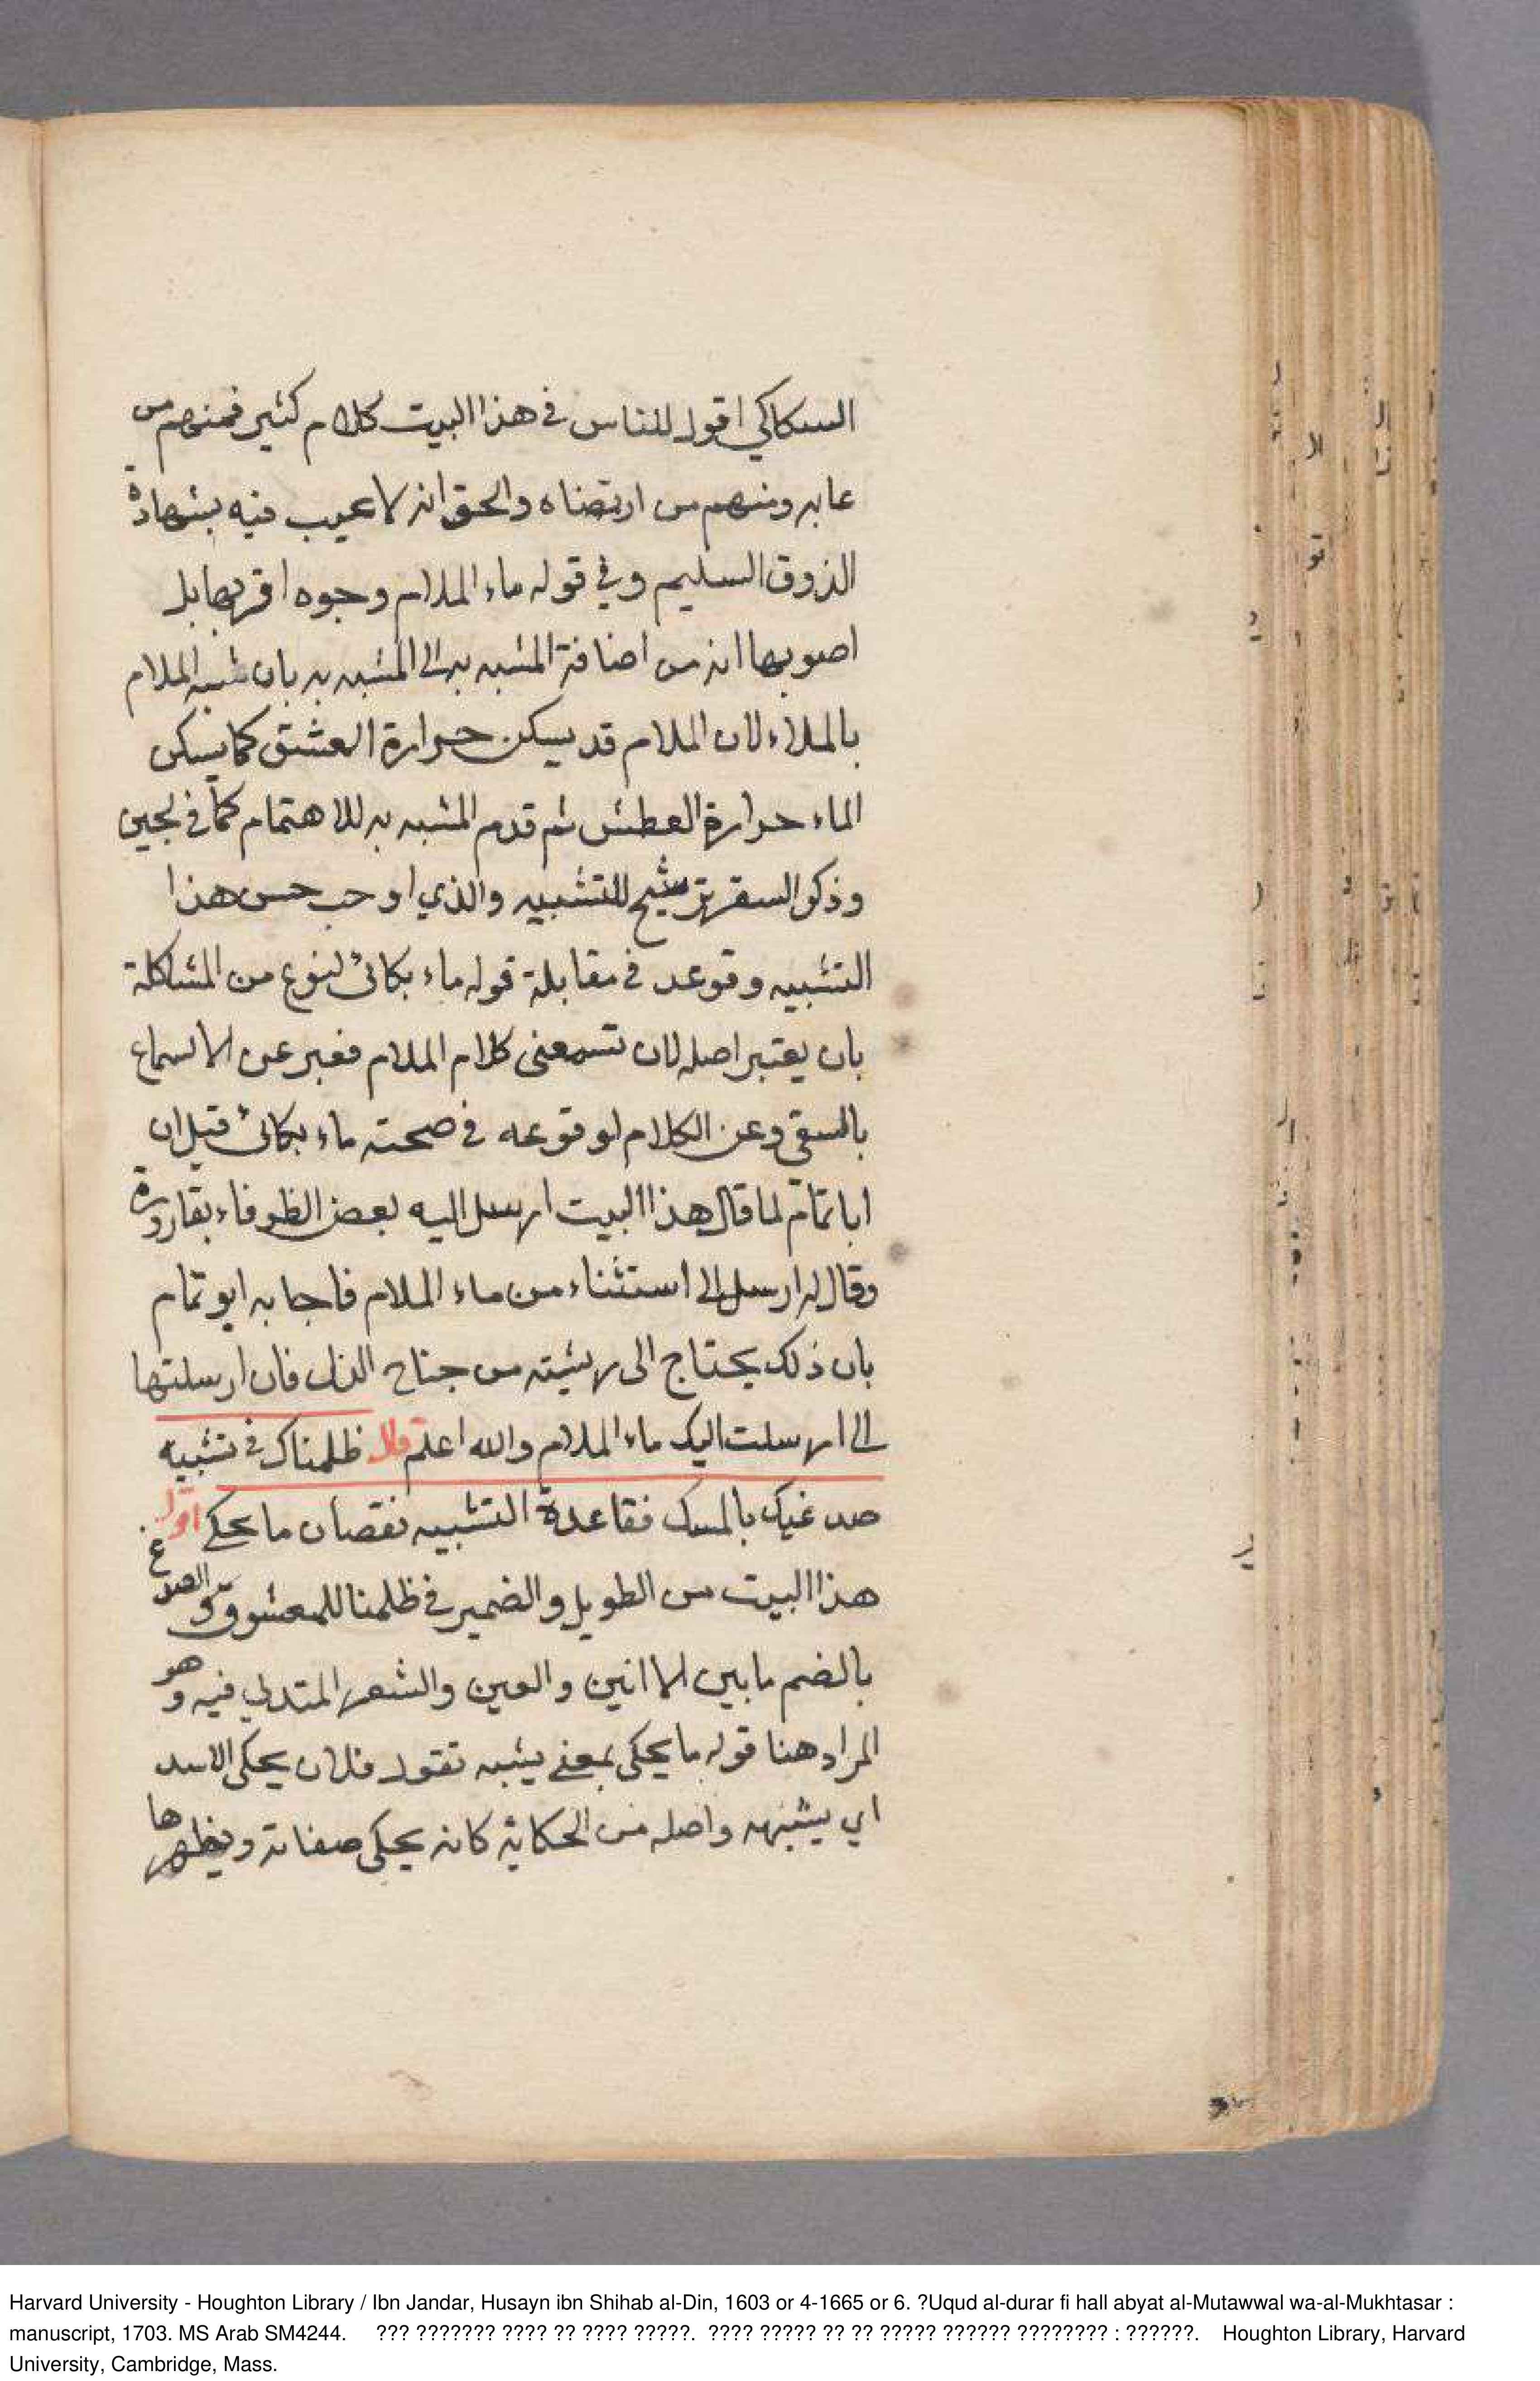 السكاكي اقول للناس في هذا البيت كلام كثير فمنهم من
عابه ومنهم من ارتضاه والحق انه لا عيب فيه بشهادة
الذوق السليم وفي قوله ماء الملام وجوه اقربها بل
اصوبها انه من اضافة المشبه به الى المشبه به بان شبه الملام
بالملاء لان الملام قد يسكن حرارة العشق كما يسكن
الماء حرارة العطش ثم قدم المشبه به للاهتمام كما في لجين
وذكر السقي ترشيح للتشبيه والذي اوجب حسن هذا
التشبيه وقوعه في مقابلة قوله ماء بكائي لنوع من المشاكلة
بان يعتبر اصله لان تسمعني كلام الملام فعبر عن الاسماع
بالسقي وعن الكلام لوقوعه في صحته ماء بكائي قيل ان
ابا تمام لما قال هذا البيت ارسل اليه بعض الظرفاء بقارورة
وقال له ارسل الى استثناء من ماء الملام فاجابه ابو تمام
بان ذلك يحتاج الى ريشة من جناح الذل فان ارسلتها
الى ارسلت اليك ماء الملام والله اعلم قال ظلمناك في تشبيه
صدغيك بالمسك فقاعدة التشبيه نقصان ما يحكى اقول
هذا البيت من الطويل والضمير في ظلمنا للمعشوق والصدغ
بالضم ما بين الاانين والعين والشعر المتدلي فيه وهو
المراد هنا قوله ما يحكى بمعنى يشبه تقول فلان يحكى الاسد
اي يشبهه واصله من الحكاية كانه يحكى صفاته ويظهرها
Harvard University - Houghton Library / Ibn Jandar, Husayn ibn Shihab al-Din, 1603 or 4-1665 or 6. ?Uqud al-durar fi hall abyat al-Mutawwal wa-al-Mukhtasar :
manuscript, 1703. MS Arab SM4244. ??? ??????? ???? ?? ???? ?????. ???? ????? ?? ?? ????? ?????? ???????? : ??????. Houghton Library, Harvard
University, Cambridge, Mass.